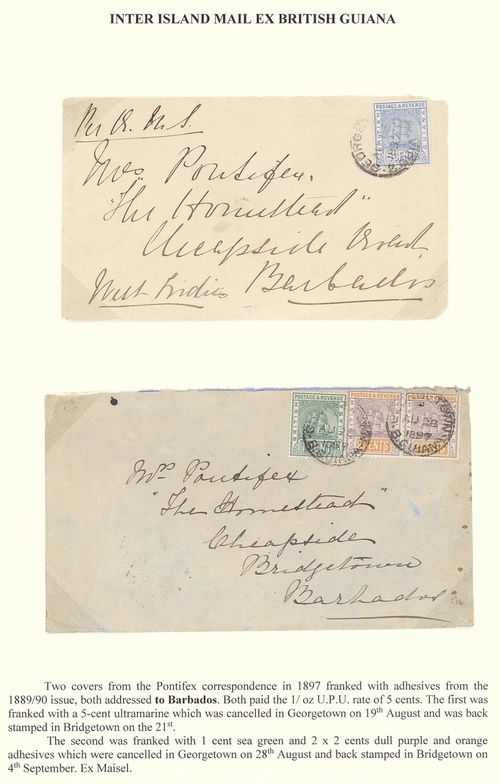 INTER ISLAND MAIL EX BRITISH GUIANA
Per R. M. S.
POSTAGE & REVENUE
Mrs Pontifex.
"The Homestead"
Cheapside
West Indies Barbados
POSTAGE & REVENUE
POSTAGE & REVENUE
AU 28
1897
2 CENTS
Mrs Pontifex
"The Homestead"
Cheapside
Bridgetown
Barbados
Two covers from the Pontifex correspondence in 1897 franked with adhesives from the
1889/90 issue, both addressed to Barbados. Both paid the 1/ oz U.P.U. rate of 5 cents. The first was
franked with a 5-cent ultramarine which was cancelled in Georgetown on 19th August and was back
stamped in Bridgetown on the 21st.
The second was franked with 1 cent sea green and 2 x 2 cents dull purple and orange
adhesives which were cancelled in Georgetown on 28th August and back stamped in Bridgetown on
4th September. Ex Maisel.